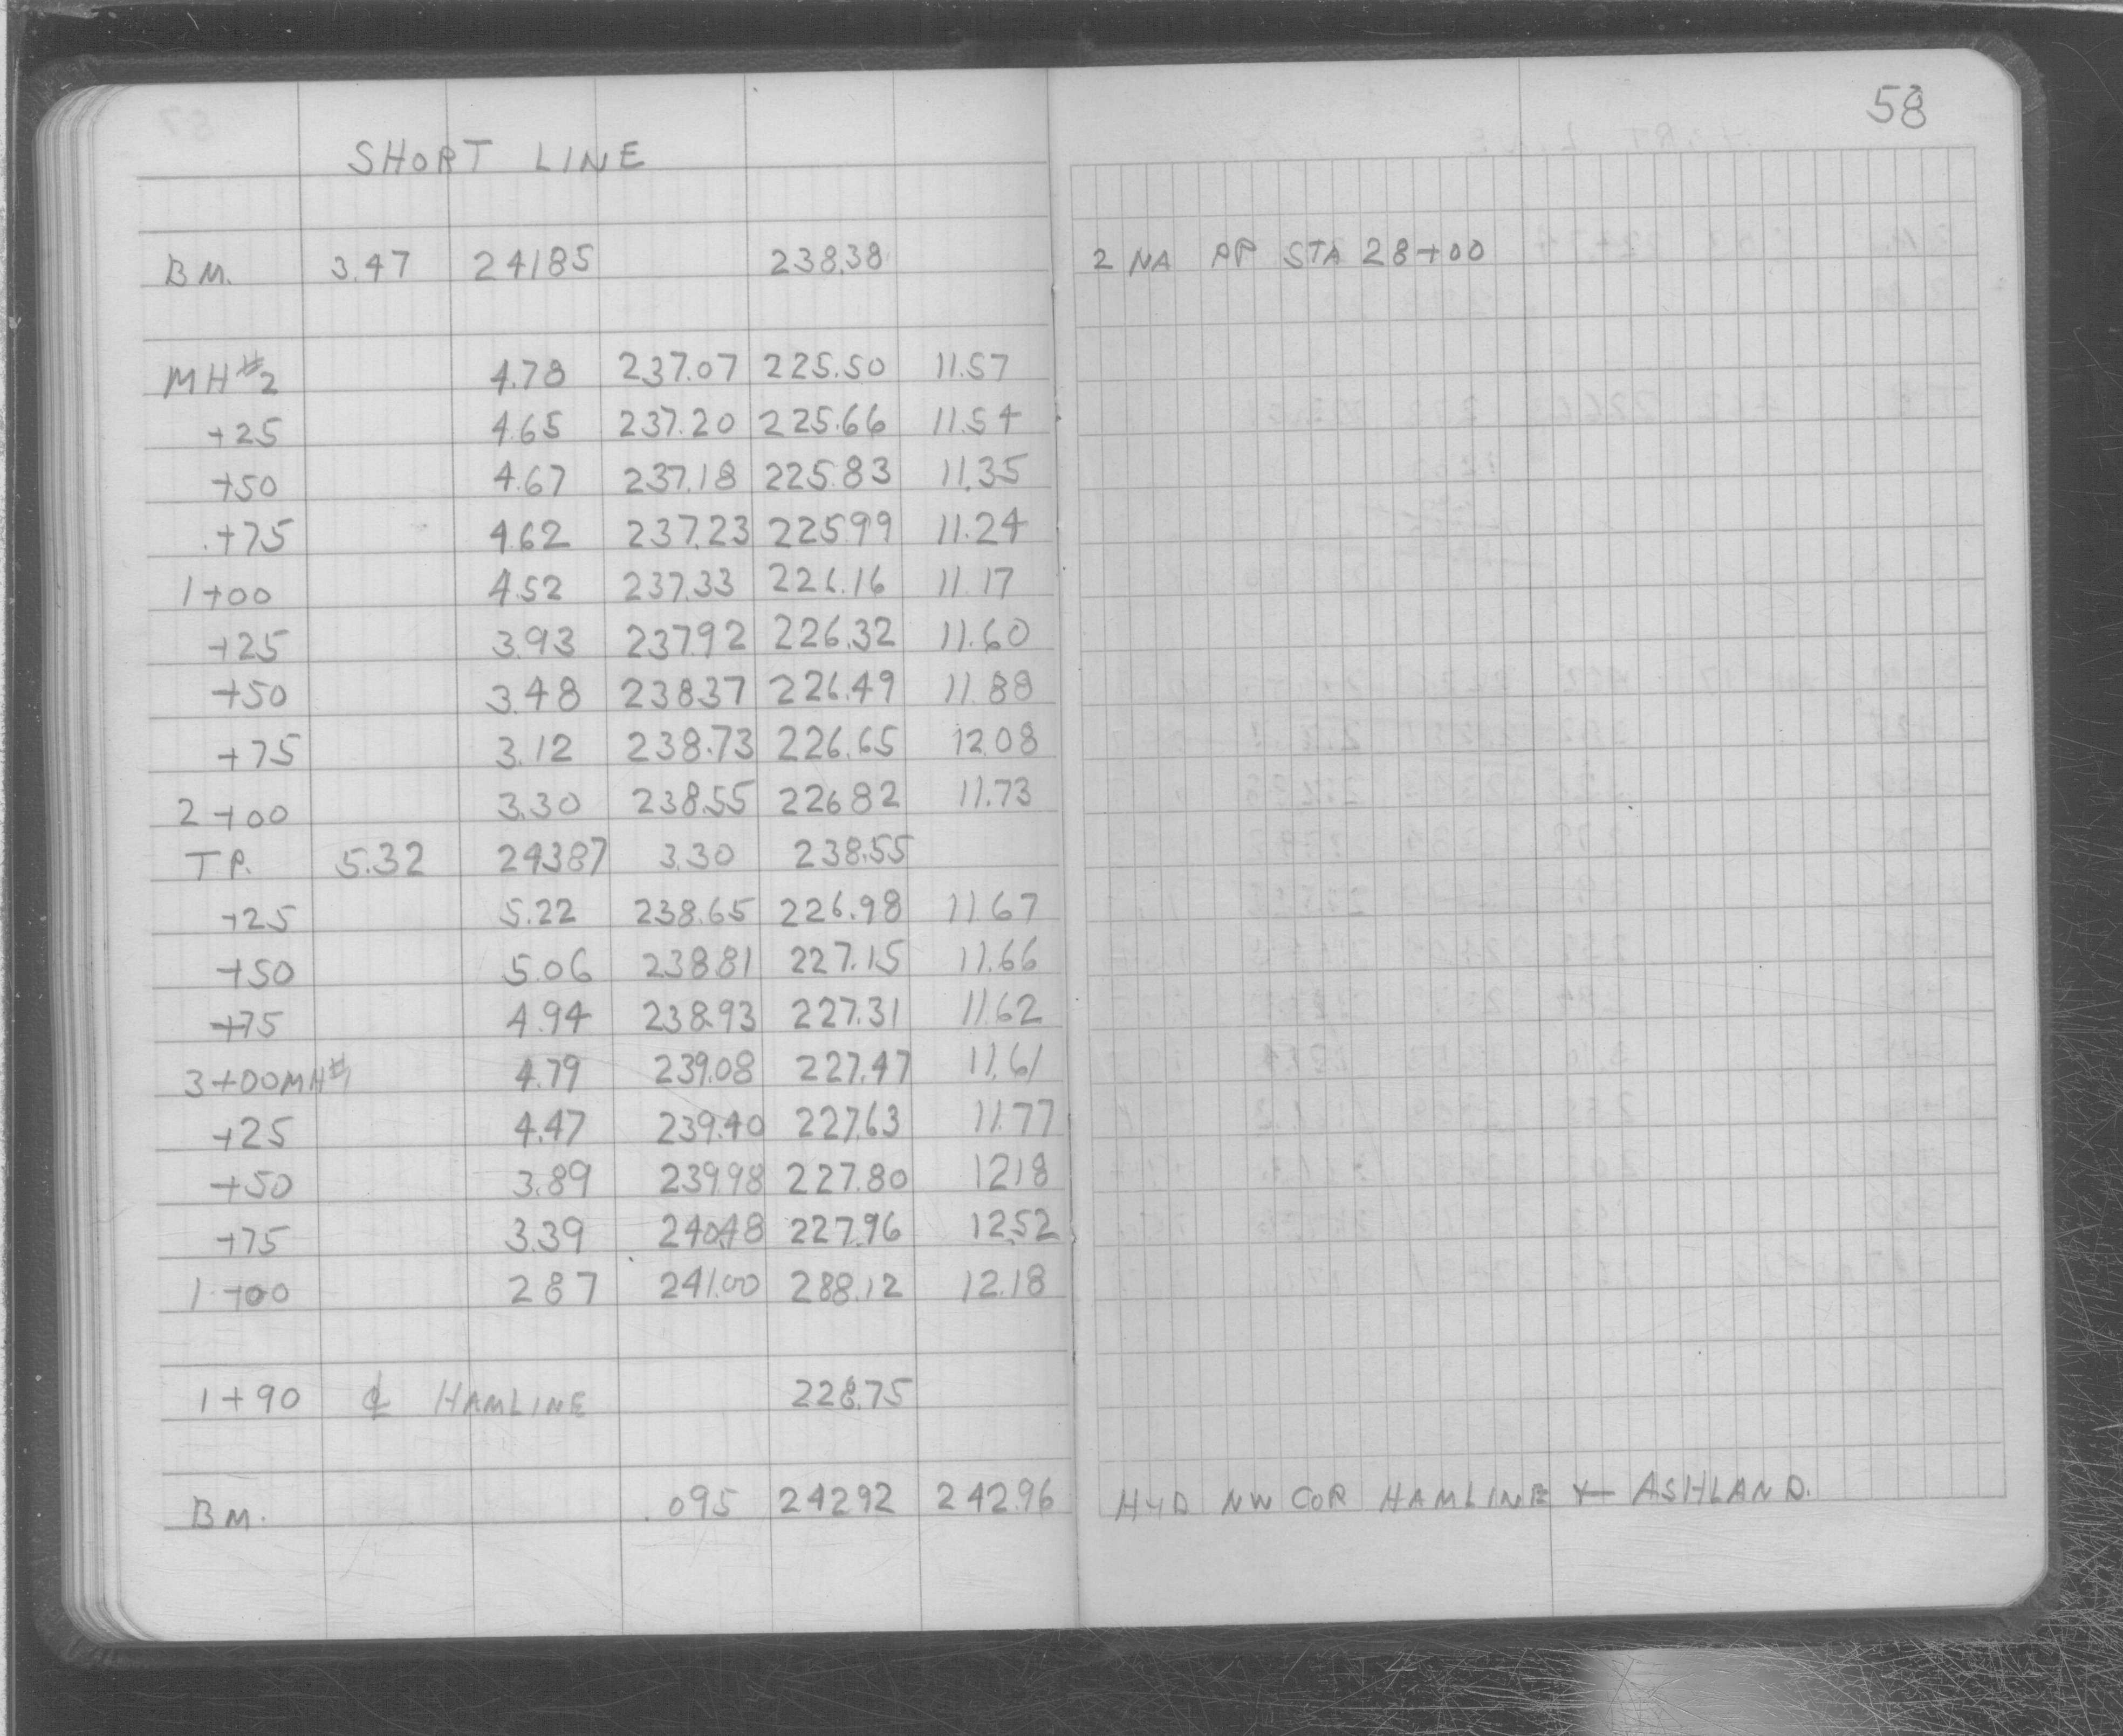 58
SHORT LINE
BM. 3.47 24185 238.38 2 NA PP STA 28+00
MH#2 4.78 237.07 225.50 11.57
+25 4.65 237.20 225.66 11.54
+50 4.67 237.18 225.83 11.35
+75 4.62 237.23 22599 11.24
1+00 4.52 237.33 226.16 11.17
+25 3.93 23792 226.32 11.60
+50 3.48 23837 226.49 11.88
+75 3.12 238.73 226.65 12.08
2+00 3.30 238.55 22682 11.73
TP. 5.32 24387 3.30 238.55
+25 5.22 238.65 226.98 11.67
+50 5.06 23881 227.15 11.66
+75 4.94 238.93 227.31 11.62
3+00MH#1 4.79 239.08 227.47 11.61
+25 4.47 239.40 227.63 11.77
+50 3.89 239.98 227.80 1218
+75 3.39 240.48 227.96 12.52
1+00 287 241.00 288.12 12.18
1+90 ℄ HAMLINE 228.75
BM. .095 24292 242.96 HYD NW COR HAMLINE + ASHLAND.